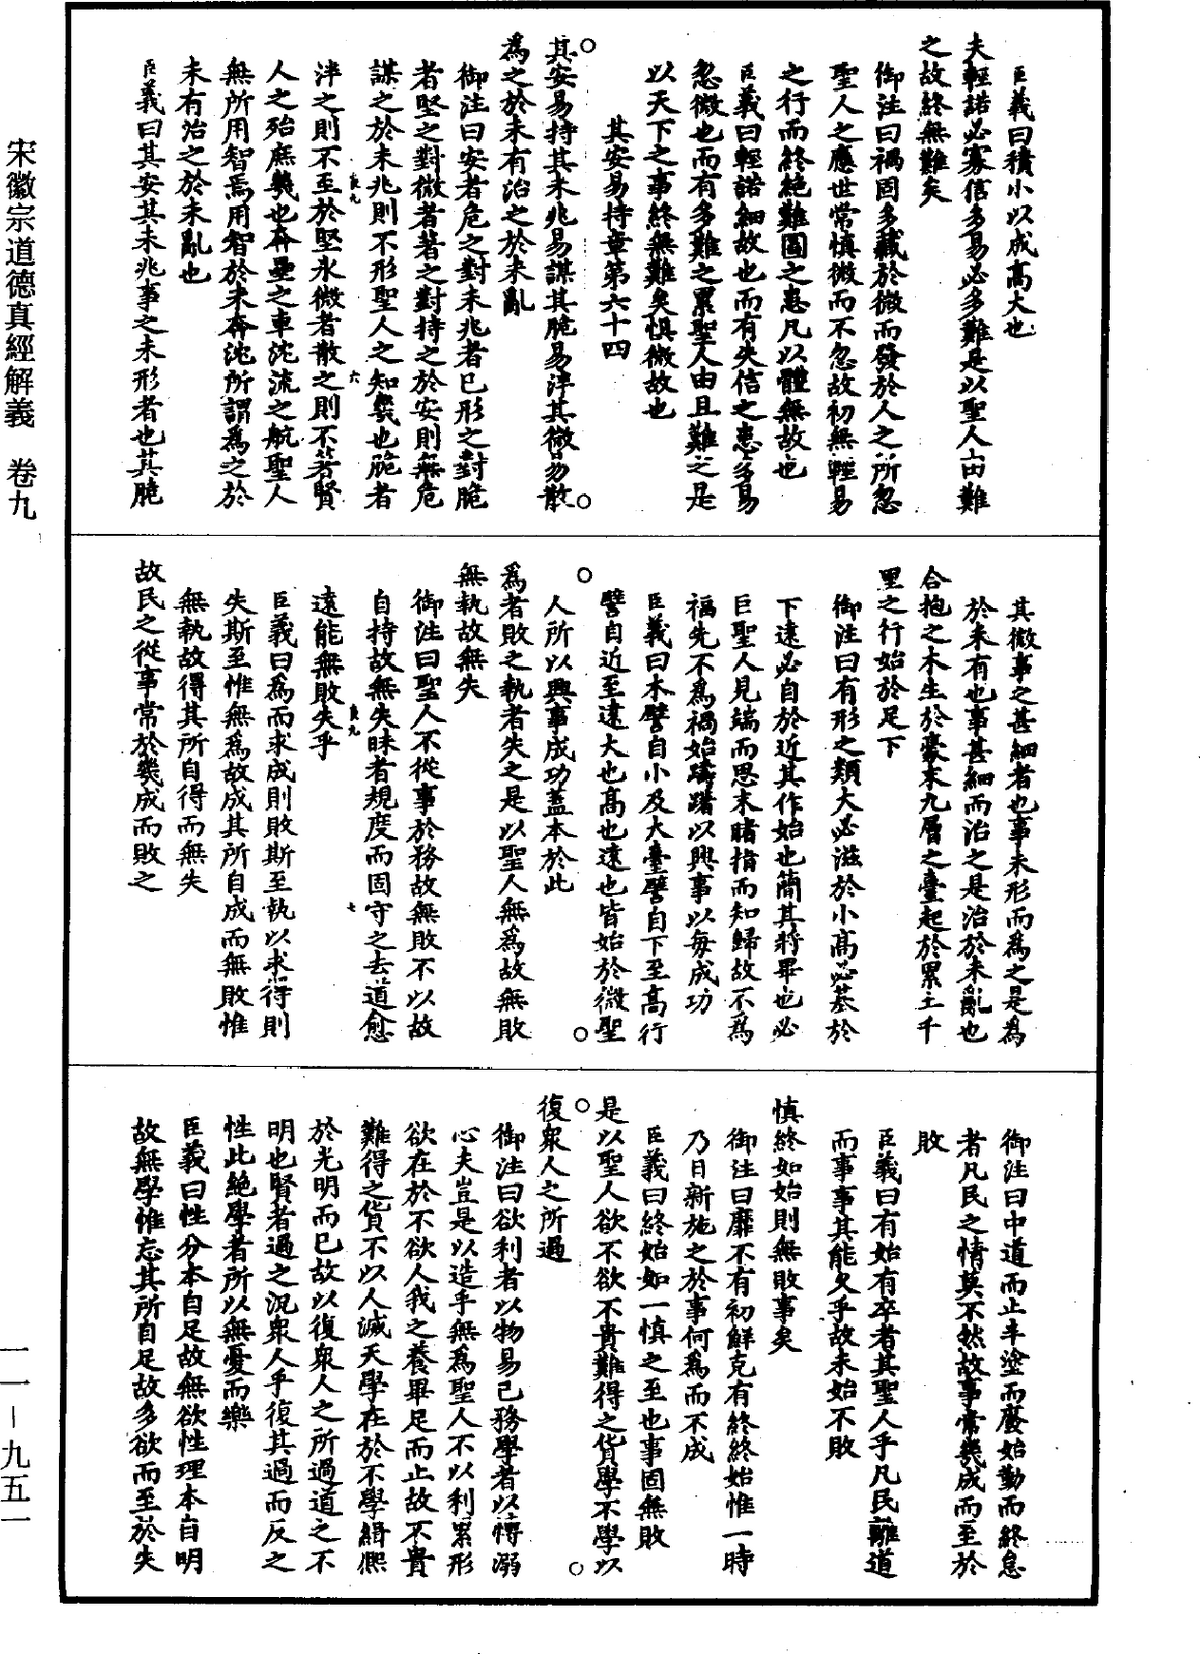 臣義曰積小以成高大也
夫輕諾必寡信多易必多難是以聖人由難
之故終無難矣
御注曰禍固多藏於微而發於人之所忽
聖人之應世常慎微而不忽故初無輕易
之行而終絕難圖之患凡以體無故也
臣義曰輕諾細故也而有失信之患多易
忽微也而有多難之累聖人由且難之是
以天下之事終無難矣慎微故也
其安易持章第六十四
其安易持其未兆易謀其脆易泮其微易散
為之於未有治之於未亂
御注曰安者危之對未兆者已形之對脆
者堅之對微者著之對持之於安則無危
謀之於未兆則不形聖人之知幾也脆者
泮之則不至於堅冰微者散之則不著賢
人之殆庶幾也奔壘之車沈流之航聖人
無所用智焉用智於未奔沈所謂為之於
未有治之於未亂也
臣義曰其安其未兆事之未形者也其脆
其微事之甚細者也事未形而為之是為
於未有也事甚細而治之是治於未亂也
合抱之木生於豪末九層之臺起於累土千
里之行始於足下
御注曰有形之類大必滋於小高必基於
下遠必自於近其作始也簡其將畢也必
巨聖人見端而思末睹指而知歸故不為
福先不為禍始躊躇以興事以每成功
臣義曰木譬自小及大臺譬自下至高行
譬自近至遠大也高也遠也皆始於微聖
人所以興事成功蓋本於此
為者敗之執者失之是以聖人無為故無敗
無執故無失
御注曰聖人不從事於務故無敗不以故
自持故無失昧者規度而固守之去道愈
遠能無敗失乎
臣義曰為而求成則敗斯至執以求得則
失斯至惟無為故成其所自成而無敗惟
無執故得其所自得而無失
故民之從事常於幾成而敗之
御注曰中道而止半塗而廢始勤而終怠
者凡民之情莫不然故事常幾成而至於
敗
臣義曰有始有卒者其聖人乎凡民離道
而事事其能久乎故未始不敗
慎終如始則無敗事矣
御注曰靡不有初鮮克有終終始惟一時
乃日新施之於事何為而不成
臣義曰終始如一慎之至也事固無敗
是以聖人欲不欲不貴難得之貨學不學以
復眾人之所過
御注曰欲利者以物易己務學者以博溺
心夫豈是以造乎無為聖人不以利累形
欲在於不欲人我之養畢足而止故不貴
難得之貨不以人滅天學在於不學緝熙
於光明而已故以復眾人之所過道之不
明也賢者過之況眾人乎復其過而反之
性此絕學者所以無憂而樂
臣義曰性分本自足故無欲性理本自明
故無學惟忘其所自足故多欲而至於失
宋徽宗道德真經解義 卷九
一一—九五一